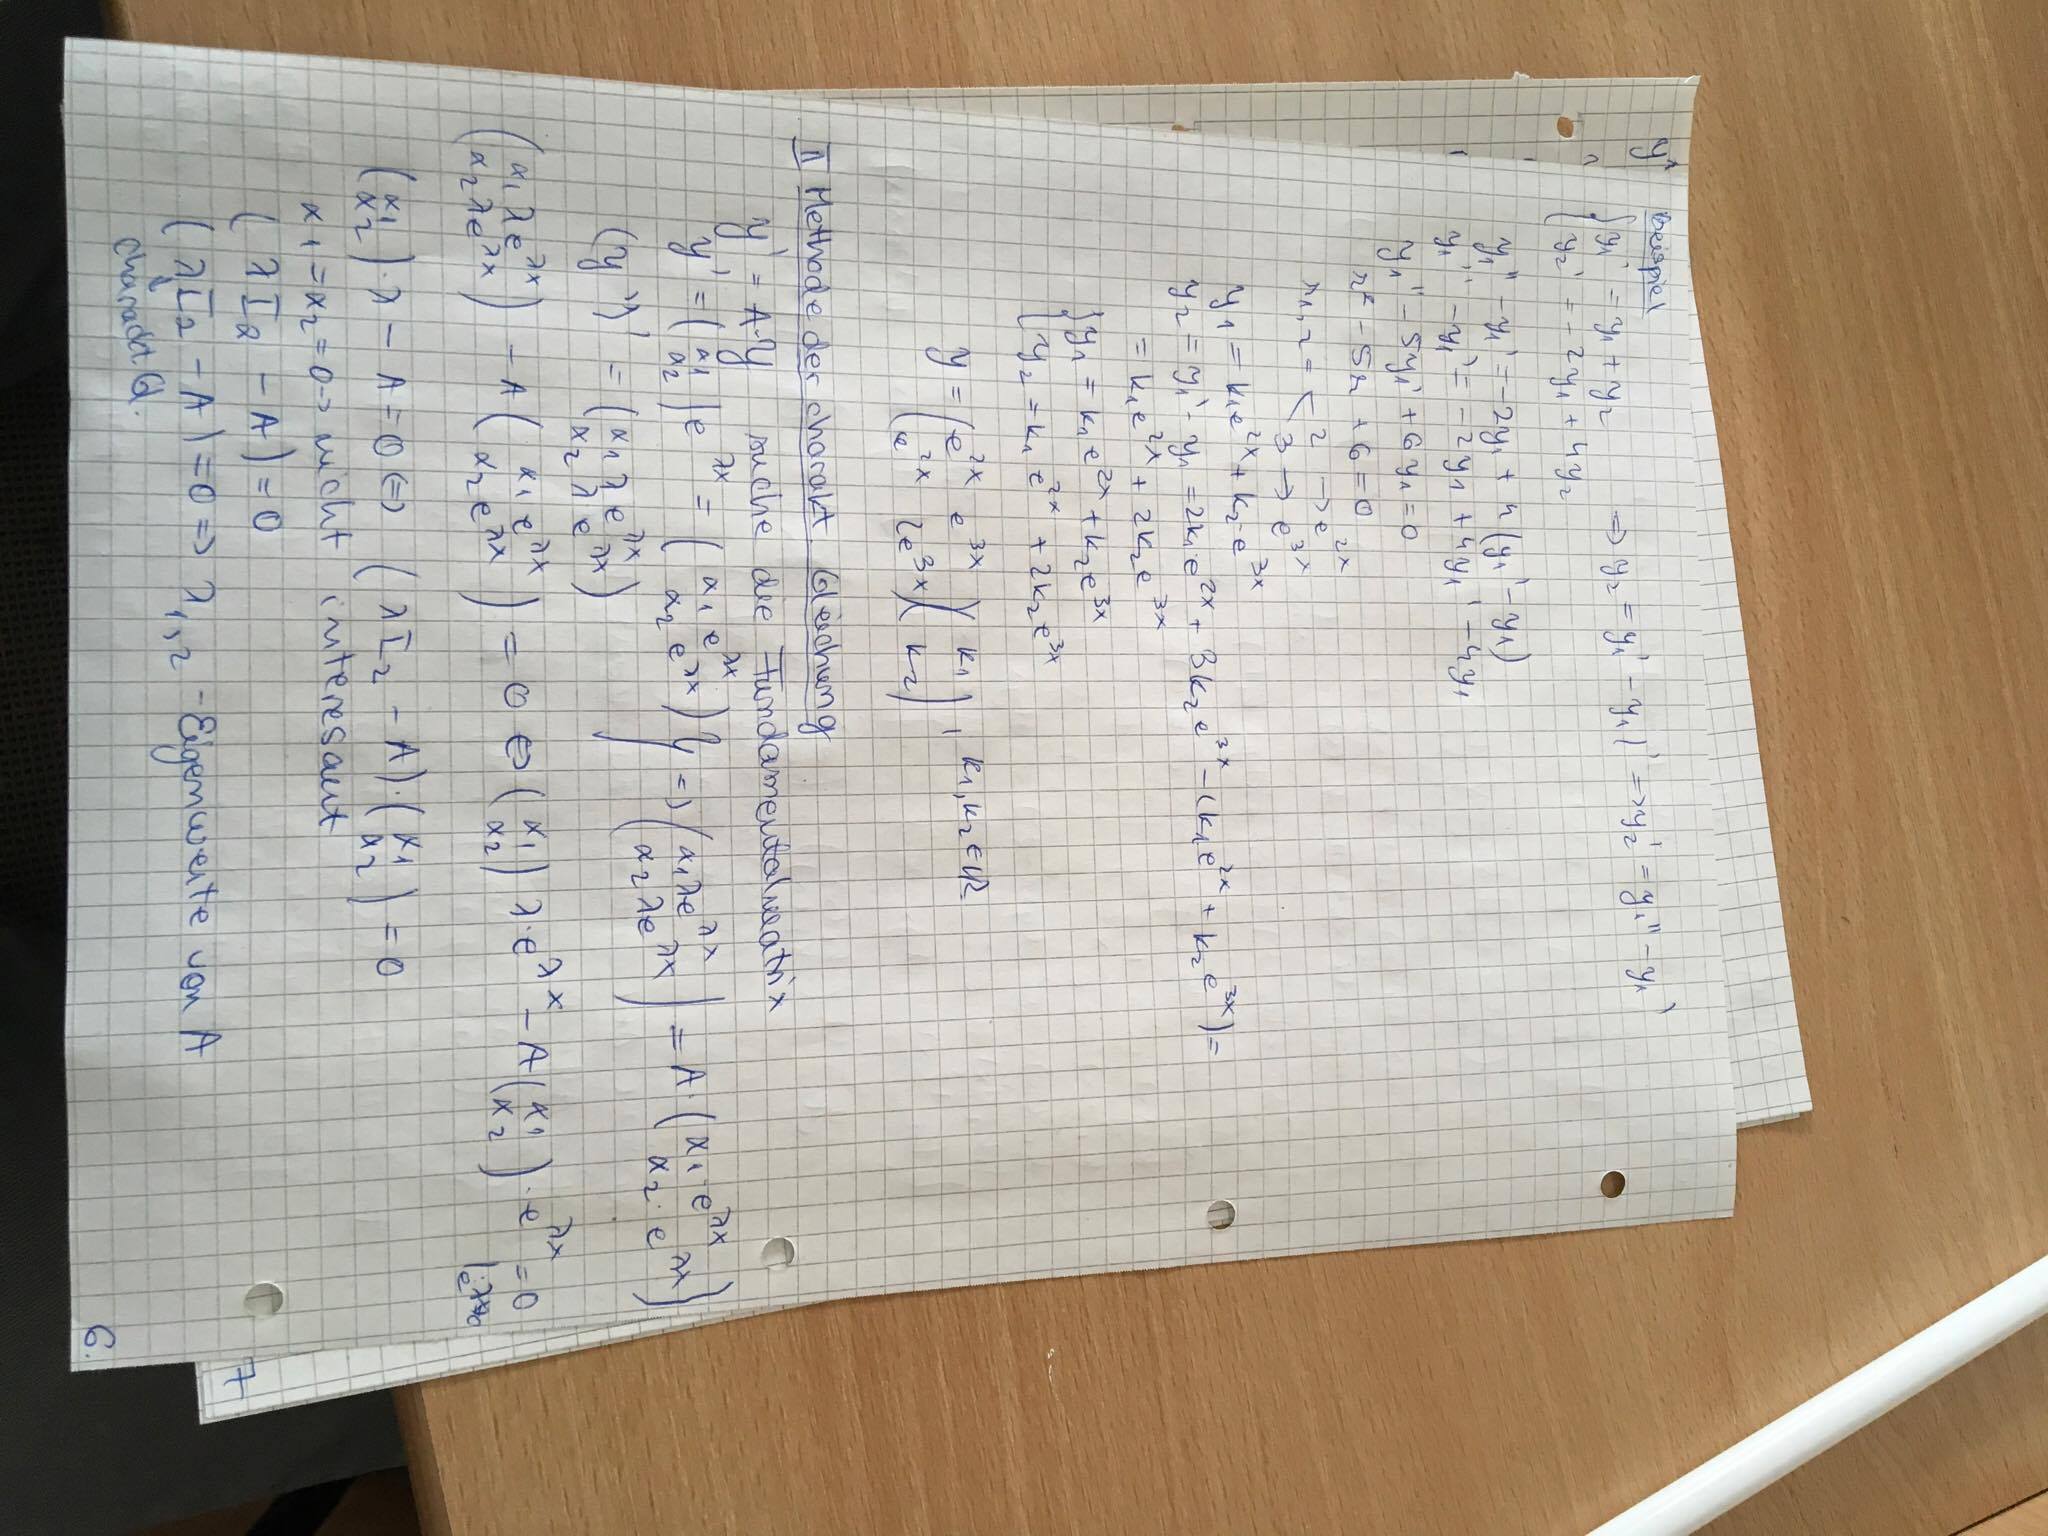 Beispiel
{y₁' = y₁ + y₂ ⇒ y₂ = y₁' - y₁ |' ⇒ y₂' = y₁'' - y₁'
{y₂' = -2y₁ + 4y₂
y₁'' - y₁' = -2y₁ + 4(y₁' - y₁)
y₁'' - y₁' = -2y₁ + 4y₁' - 4y₁
y₁'' - 5y₁' + 6y₁ = 0
r² - 5r + 6 = 0
r₁,₂ = < 2 → e^2x
3 → e^3x
y₁ = k₁e^2x + k₂e^3x
y₂ = y₁' - y₁ = 2k₁e^2x + 3k₂e^3x - (k₁e^2x + k₂e^3x) =
= k₁e^2x + 2k₂e^3x
{y₁ = k₁e^2x + k₂e^3x
{y₂ = k₁e^2x + 2k₂e^3x
y = (e^2x e^3x) (k₁) , k₁, k₂ ∈ ℝ
(e^2x 2e^3x) (k₂)
II Methode der charakt. Gleichung
y' = A·y suche die Fundamentalmatrix
y' = (α₁) e^λx = (α₁e^λx) } ⇒ (α₁λe^λx) = A·(α₁·e^λx)
(α₂) (α₂e^λx) (α₂λe^λx) (α₂·e^λx)
(y^λ)' = (α₁λe^λx)
(α₂λe^λx)
(α₁λe^λx) - A (α₁e^λx) = 0 ⇔ (α₁) λ·e^λx - A (α₁)·e^λx = 0
(α₂λe^λx) (α₂e^λx) (α₂) (α₂)
(α₁)·λ - A = 0 ⇔ (λI₂ - A)·(α₁) = 0
(α₂) (α₂)
α₁ = α₂ = 0 → nicht interesant
(λI₂ - A) = 0
(λI₂ - A) = 0 ⇒ λ₁,₂ - Eigenwerte von A
charakt. Gl.
6.
7